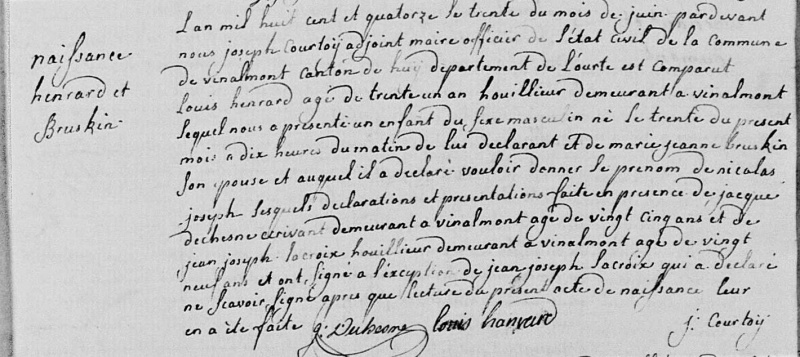 naissance
henrard et
Bruskin
L'an mil huit cent et quatorze le trente du mois de juin pardevant
nous joseph Courtoij adjoint maire officier de l'état civil de la Commune
de vinalmont canton de huij departement de L'ourte est comparut
Louis henrard agé de trente un an houillieur demeurant a vinalmont
lequel nous a présenté un enfant du sexe masculin né le trente du present
mois a dix heures du matin de lui declarant et de marie jeanne bruskin
son epouse et auquel il a declaré vouloir donner le prenom de nicolas
joseph lesquels declarations et presentations faite en presence de jacque
dechesne ecrivant demeurant a vinalmont agé de vingt cinq ans et de
jean joseph lacroix houillieur demeurant a vinalmont age de vingt
neuf ans et ont signé a l'exception de jean joseph lacroix qui a declaré
ne scavoir signé apres que lecture du présent acte de naissance leur
en a ete faite g. Duchesne louis hanrard j. Courtoij